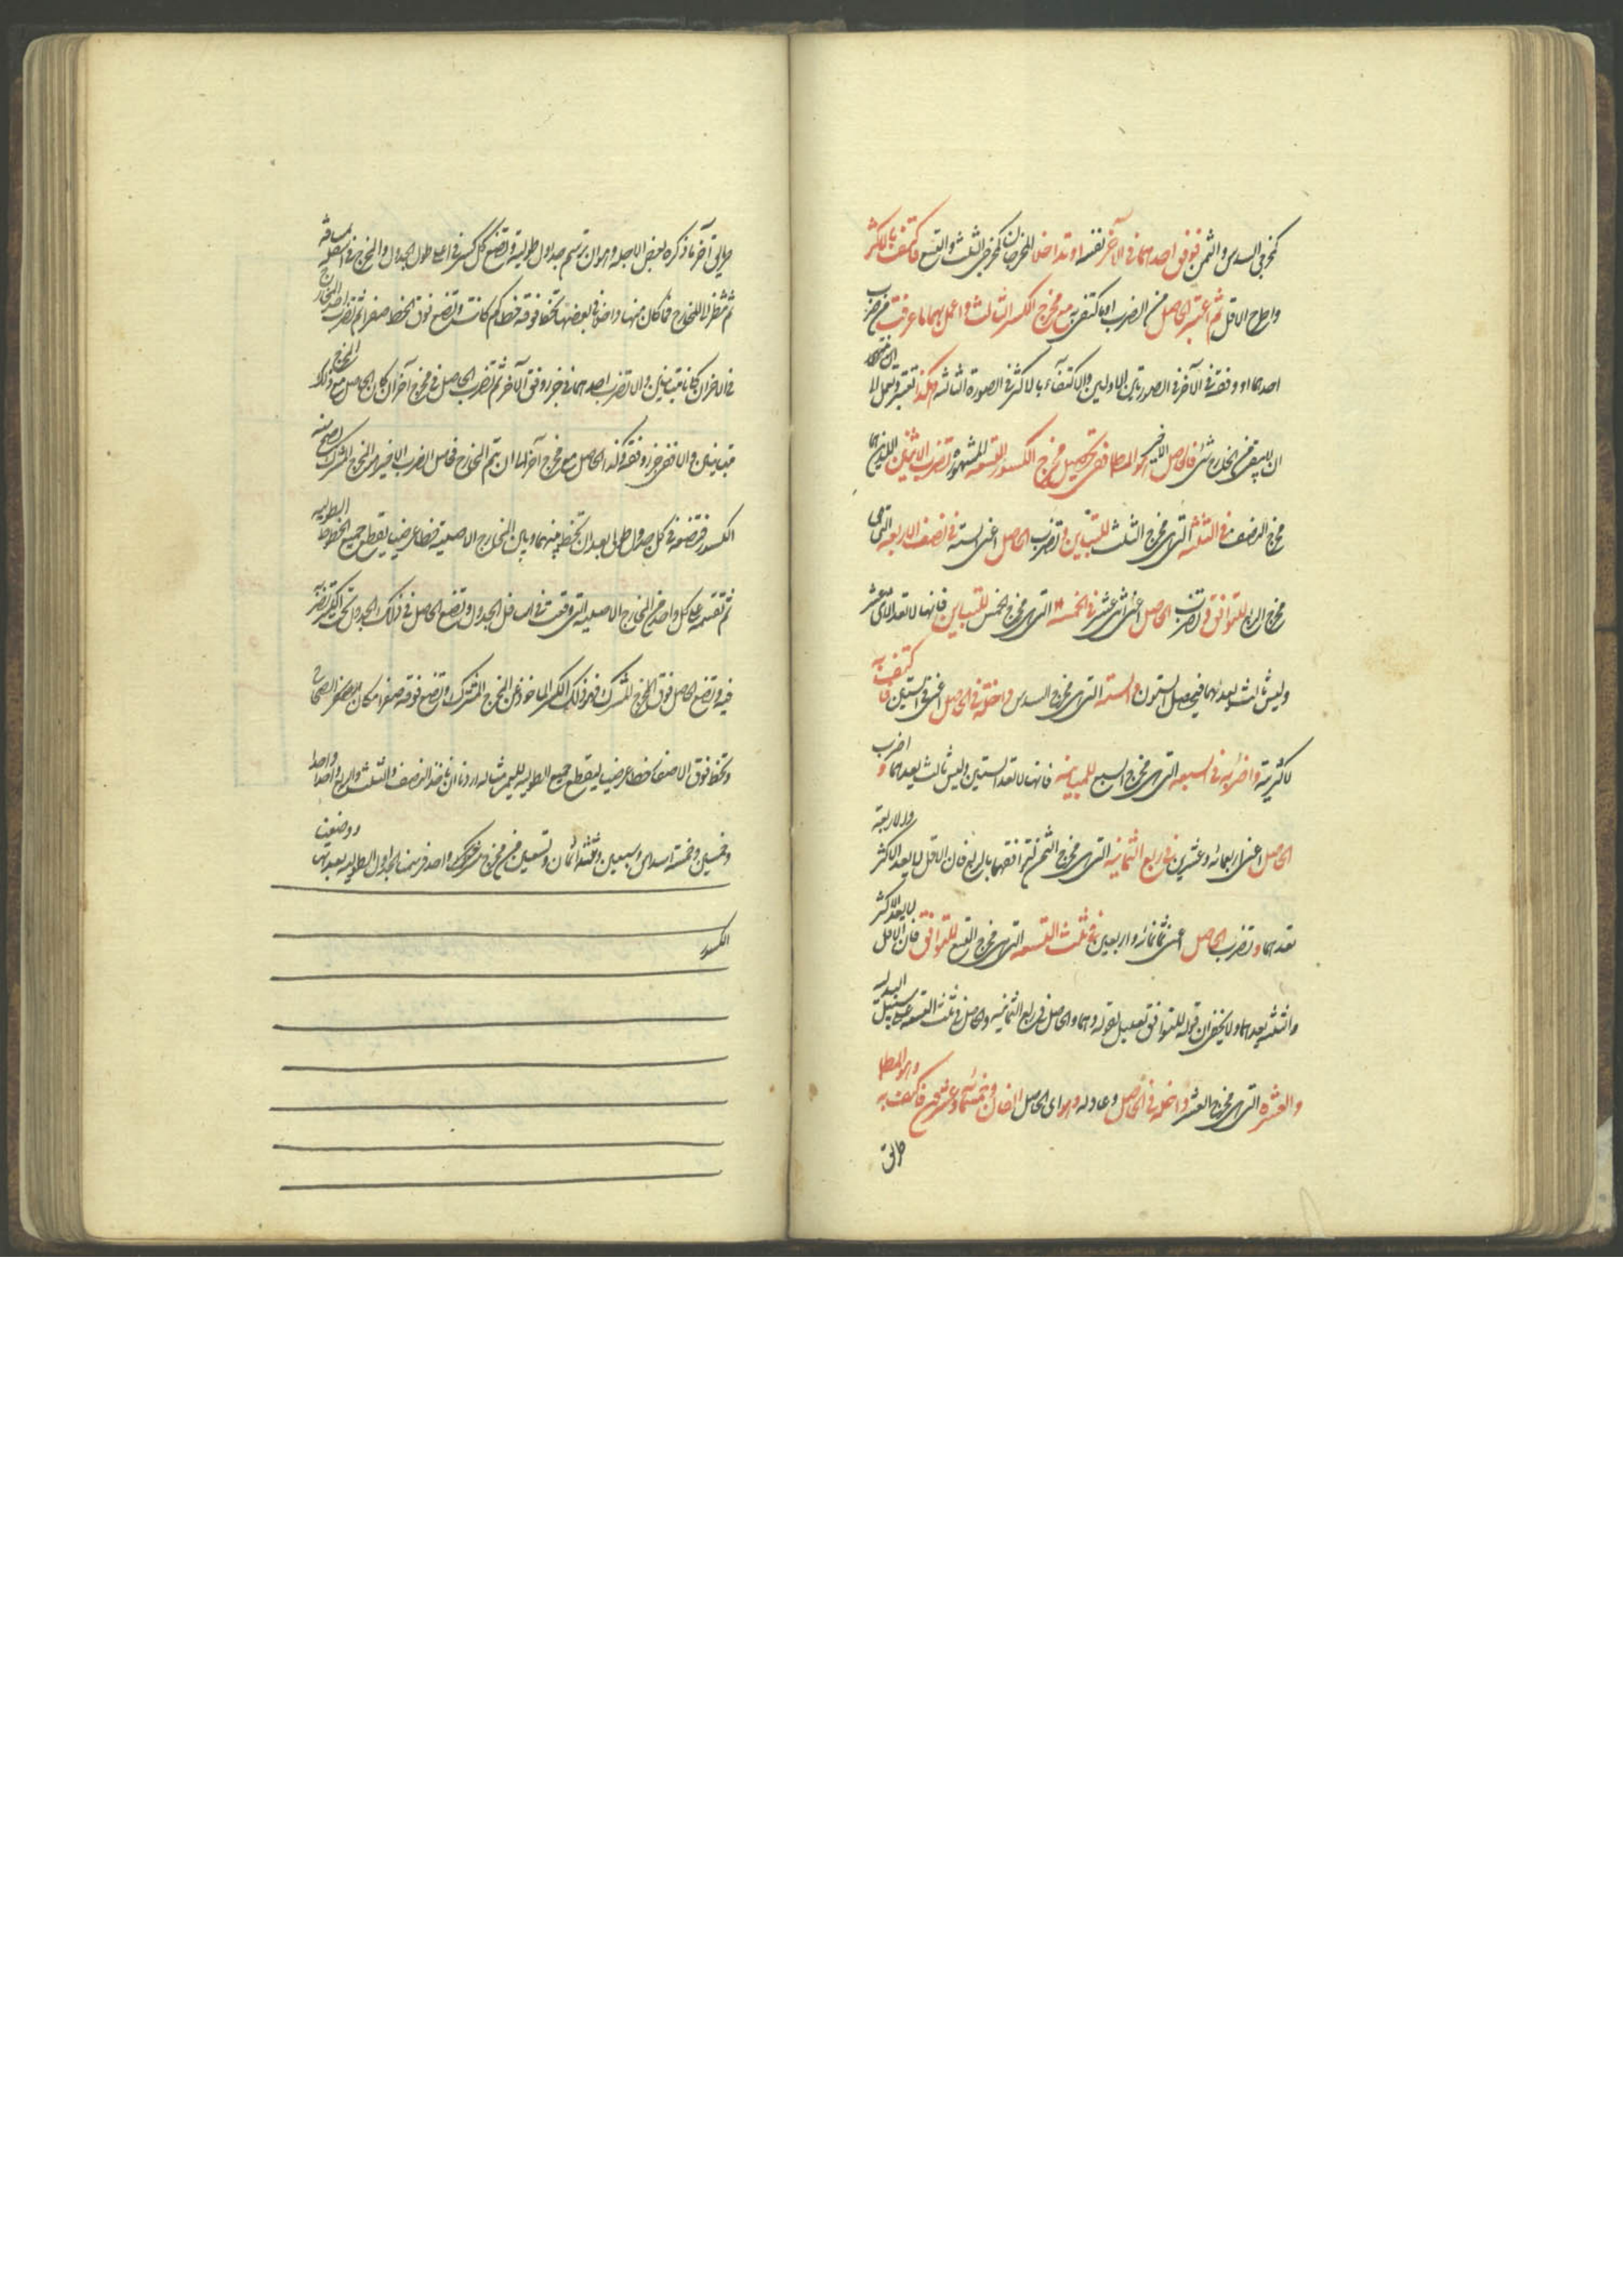 كمخرجي السدس والثمن فوفق احدهما في الآخر نفسه او تداخل المخرجان كمخرجي الثلث والتسع فاكتف بالاكثر
واطرح الاقل ثم اعتبر الحاصل من الضرب او ما اكتفى به مع مخرج الكسر الثالث واعمل بهما ما عرفت من ضرب
احدهما او وفقه في الآخر في الصورتين الاوليين والاكتفاء بالاكثر في الصورة الثالثة هكذا تعتبر وتعمل الى ان ينتهي
ان لا يبقى من المخارج شئ فالحاصل الاخير هو المطلوب ففي تحصيل مخرج الكسور التسعة المشهورة تضرب الاثنين اللذين هما
مخرج النصف في الثلثة التي هي مخرج الثلث للتباين وتضرب الحاصل اعني الستة في نصف الاربعة التي هي
مخرج الربع للتوافق وتضرب الحاصل اعني اثني عشر في الخمسة التي هي مخرج الخمس للتباين فانها لا تعد الاثني عشر
وليس ثالث يعدهما فيحصل الستون والستة التي هي مخرج السدس داخلة في الحاصل اعني الستين فاكتف به
لاكثريته واضربه في السبعة التي هي مخرج السبع للمباينة فانها لا تعد الستين وليس ثالث يعدهما واضرب
الحاصل اعني اربعمائة وعشرين في ربع الثمانية التي هي مخرج الثمن لتوافقهما بالربع فان الاقل لا يعد الاكثر والاربعة
تعدهما وتضرب الحاصل اعني ثمانمائة واربعين في ثلث التسعة التي هي مخرج التسع للتوافق فان الاقل لا يعد الاكثر
والثلثة تعدهما ولا يخفى ان قوله للتوافق تعليل لقوله وهما والحاصل في ربع الثمانية والحاصل في ثلث التسعة على سبيل البدلية
والعشرة التي هي مخرج العشر داخلة في الحاصل وعادله وهو اي الحاصل الفان وخمسمائة وعشرون فاكتف به وهو المطلوب
طريق
طريق آخر ما ذكره بعض الاجلة وهو ان ترسم جداول طولية وتضع كل كسر في اعلى طول الجدول والمخرج في اسفله
ثم تنظر الى المخارج فما كان منها داخلا في بعضها تخط فوقه خطا كم كانت وتضع فوق الخط صفرا ثم تضرب احد المخارج
في الآخر ان كانا متباينين والا تضرب احدهما في جزء وفق الآخر ثم تضرب الحاصل في مخرج آخر ان كان الحاصل مع ذلك المخرج
متباينين والا ففي جزء وفقه وكذا الحاصل مع مخرج آخر الى ان يتم المخارج فحاصل الضرب الاخير هو المخرج المشترك
الكسور فتضعه في كل جدول طولي بعد ان تخط بينهما وبين المخارج الاصلية خطا عرضيا يقطع جميع الخطوط الطولية
ثم تقسمه على كل واحد من المخارج الاصلية التي وقعت في اسافل الجدول وتضع الحاصل في ذلك الجدول تحت الكسر وتضربه
فيه وتضع الحاصل فوق المخرج المشترك فهو ذلك الكسر المأخوذ من المخرج المشترك وتضع فوقه صفرا مكان الصحاح
وتخط فوق الاصفار خطا عرضيا ليقطع جميع الطولية مثاله اردنا ان نأخذ النصف والثلث والربع واحدا واحدا
وخمسين وخمسة اسداس وسبعين وثلثة اثمان وتسعين من مخرج مشترك واحد فرسمنا الجداول الطولية بعدتها ووضعت
الكسور